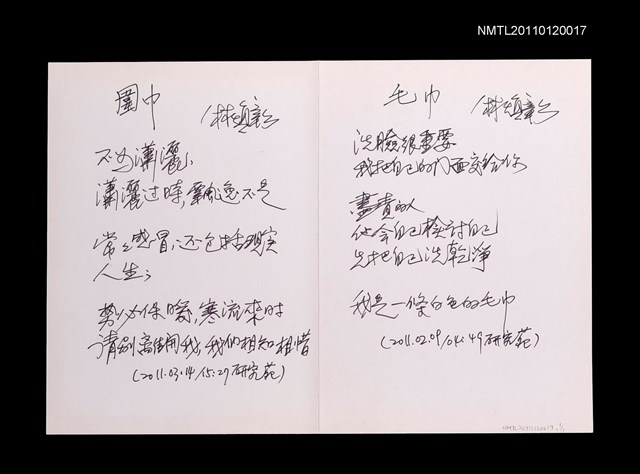 NMTL20110120017
圍巾
林煥彰
不為瀟灑，
瀟灑过時，飄逸不是
常々感冒，还包括現实
人生；
務必保暖，寒流來时
請別離開我，我们相知相惜
(2011.03.14/15:27研究苑)
毛巾
林煥彰
洗臉很重要
我把自己的门面交給你
盡責的人
他会自己檢討自己
先把自己洗乾淨
我是一條白色的毛巾
(2011.02.09/04:49研究苑)
NMTL20110120017